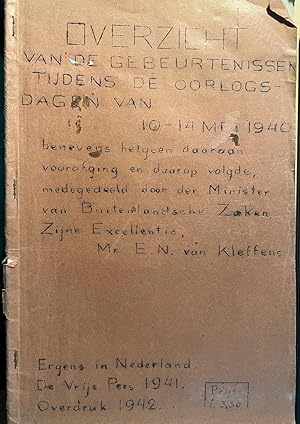 OVERZICHT
VAN DE GEBEURTENISSEN
TIJDENS DE OORLOGS-
DAGEN VAN
10-14 MEI 1940
benevens hetgeen daaraan
voorafging en daarop volgde,
medegedeeld door der Minister
van Buitenlandsche Zaken
Zijne Excellentie,
Mr E.N. van Kleffens
Ergens in Nederland.
De Vrije Pers 1941.
Overdruk 1942.
Prijs
f. 3,50